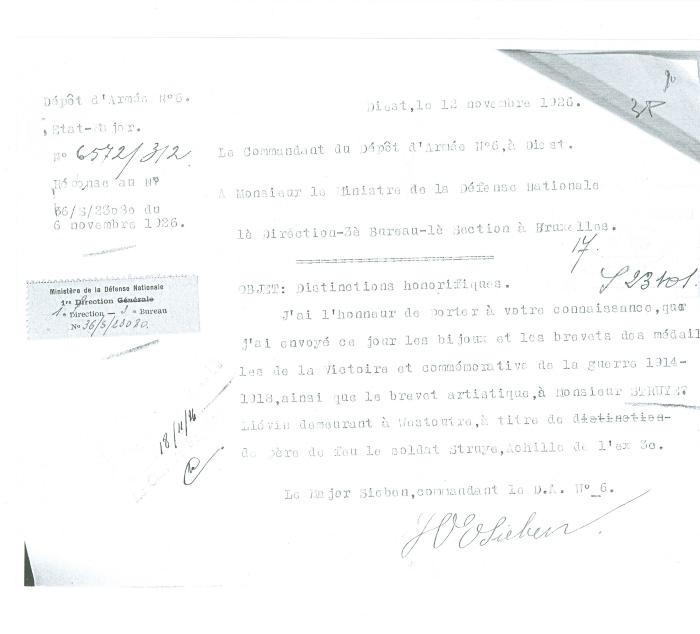 Dépôt d'Armée N°6.
Etat-Major.
N° 6572/312
Réponse au N°
36/S/23080 du
6 novembre 1926.
Diest, le 12 novembre 1926.
Le Commandant du Dépôt d'Armée N°6, à Diest.
A Monsieur le Ministre de la Défense Nationale
1è Direction-3è Bureau-1è Section à Bruxelles.
17.
S 23101.
Ministère de la Défense Nationale
1re Direction Générale
1e Direction — 3e Bureau
No 36/S/23080.
OBJET: Distinctions honorifiques.
J'ai l'honneur de porter à votre connaissance, que
j'ai envoyé ce jour les bijoux et les brevets des médail
les de la Victoire et commémorative de la guerre 1914-
1918, ainsi que le brevet artistique, à Monsieur STRUYE
Liévin demeurant à Westoutre, à titre de distinction-
de père de feu le soldat Struye, Achille de l'ex 3e.
18/11/26
Le Major Sieben, commandant le D.A. N°_6.
Sieben